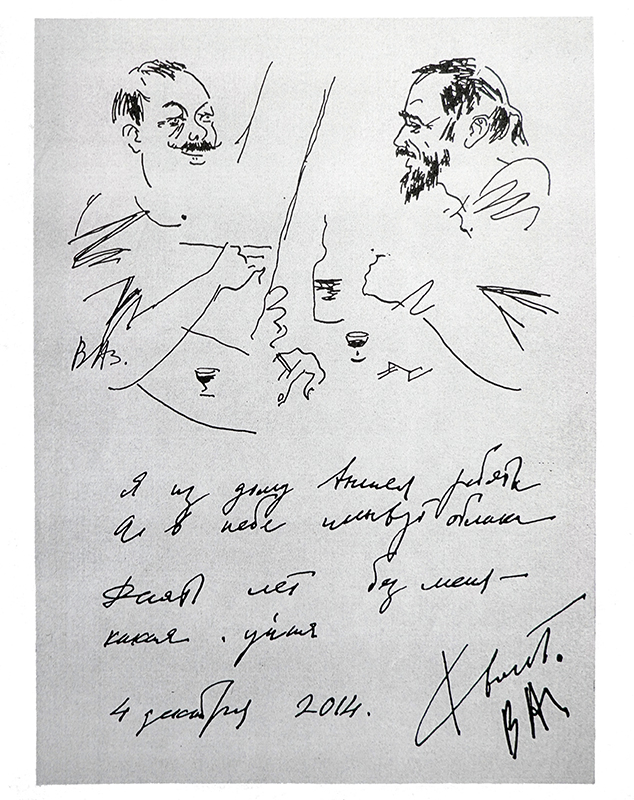 В Аз.
Я из дому вышел ребята
А в небе плывут облака
Десять лет без меня —
какая . уйня
4 декабря 2014.
Хвост.